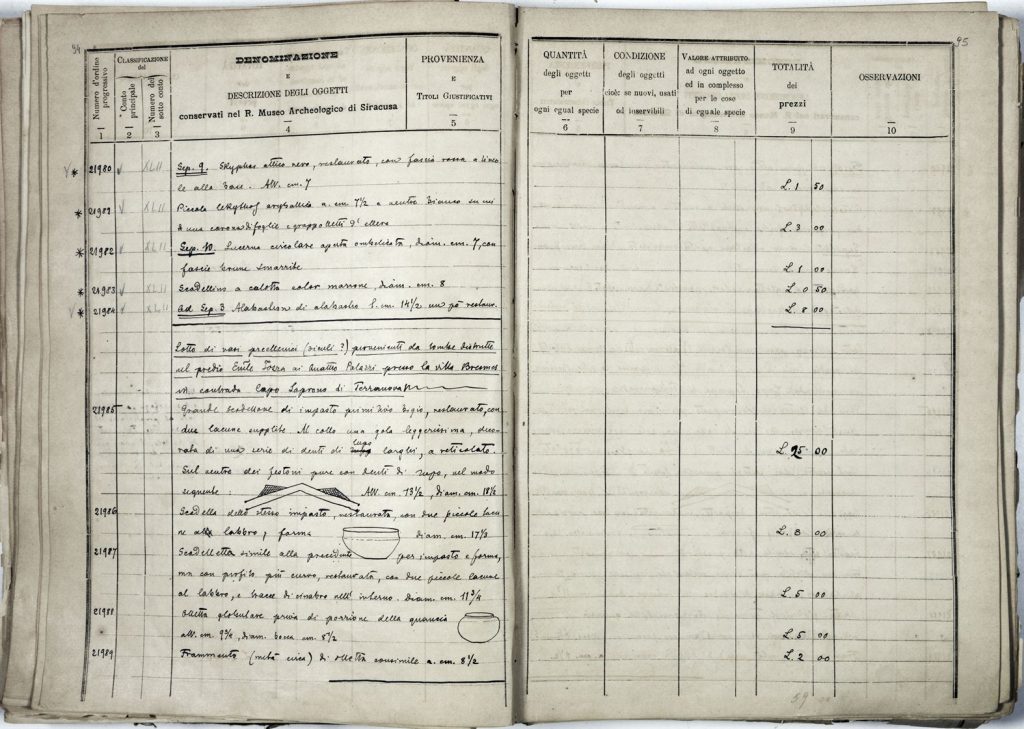 94
Numero d'ordine progressivo
CLASSIFICAZIONE
del
Conto principale
Numero del sotto conto
DENOMINAZIONE
E
DESCRIZIONE DEGLI OGGETTI
conservati nel R. Museo Archeologico di Siracusa
PROVENIENZA
E
TITOLI GIUSTIFICATIVI
1 2 3 4 5
* 21980 XLII Sep. 9. Skyphos attico nero, restaurato, con fascia rossa a linee
alla base. Alt. cm. 7
* XLII Piccola lekythos aryballica a. cm. 7 1/2 e ventre bianco su cui
è una corona di foglie e grappoletti d'ellera
* 21982 XLII Sep. 10. Lucerna circolare aperta ombelicata, diam. cm. 7, con
fascie brune smarrite
* 21983 XLII Scodellino a calotta color marrone, diam. cm. 8
* 21984 XLII Ad Sep. 3 Alabastron di alabastro l. cm. 14 1/2 un pò restaur.
Lotto di vasi preellenici (siculi?) provenienti da tombe distrutte
nel predio Emile ai Quattro Palazzi presso la villa
in contrada Lapo di Terranova
21985 Grande scodellone di impasto primitivo bigio, restaurato, con
due lacune supplite. Al collo una gola leggerissima, deco-
rata di una serie di denti di lupo larghi, a reticolato.
Sul ventre dei festoni pure con denti di lupo, nel modo
seguente: Alt. cm. 13 1/2, diam. cm. 18 1/2
21986 Scodella dello stesso impasto, restaurata, con due piccole lacu-
ne al labbro, forma diam. cm.
21987 Scodelletta simile alla precedente per impasto e forma,
ma con profilo più curvo, restaurata, con due piccole lacune
al labbro, e tracce di cinabro nell'interno. Diam. cm. 11 3/4
21988 Olletta globulare priva di porzione della guancia
alt. cm. 9 3/4, diam. bocca cm. 8 1/2
21989 Frammento (metà circa) di olletta consimile a. cm. 8 1/2
95
QUANTITÀ
degli oggetti
per
ogni egual specie
CONDIZIONE
degli oggetti
cioè: se nuovi, usati
od inservibili
VALORE ATTRIBUITO
ad ogni oggetto
ed in complesso
per le cose
di eguale specie
TOTALITÀ
dei
prezzi
OSSERVAZIONI
6 7 8 9 10
L. 1 50
L. 3 00
L. 1 00
L. 0 50
L. 8 00
L. 25 00
L. 8 00
L. 5 00
L. 5 00
L. 2 00
59